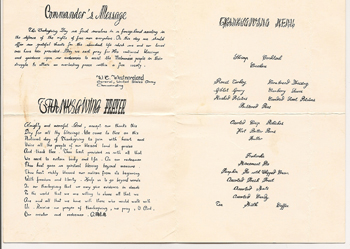 Commander's Message
This Thanksgiving Day we find ourselves in a foreign land assisting
in the defense of the rights of free men everywhere. On this day we should
offer our grateful thanks for the abundant life which we and our loved
ones have been provided. May we each pray for His continued blessings
and guidance upon our endeavors to assist the Vietnamese people in their
struggle to attain an everlasting peace within a free society.
W.C. Westmoreland
General, United States Army
Commanding
THANKSGIVING PRAYER
Almighty and merciful God, accept our thanks this
Day for all thy blessings. We come to Thee on this
National day of Thanksgiving to join with heart and
Voice all the people of our blessed land to praise
And thank thee. Thou hast provided us with all that
We need to sustain body and life. As our endeavors
Thou hast given us spiritual blessing beyond measure
Thou hast richly blessed our nation from its beginning
With freedom and liberty. Help us to go beyond words
In our thanksgiving that we may give evidence in deeds
To the world that we are willing to share all that we
Are and all that we have with those who would walk with
Us. Receive our prayer of thanksgiving, we pray, O God,
Our creator and redeemer. AMEN
THANKSGIVING MENU
Shrimp Cocktail
Crackers
Roast Turkey
Cornbread Dressing
Giblet Gravy
Cranberry Sauce
Mashed Potatoes
Candied Sweet Potatoes
Buttered Peas
Assorted Crisp Relishes
Hot Rolls
Butter
Fruitcake
Mincemeat Pie
Pumpkin Pie with Whipped Cream
Assorted Fresh Fruit
Assorted Nuts
Assorted Candy
Tea
Milk
Coffee